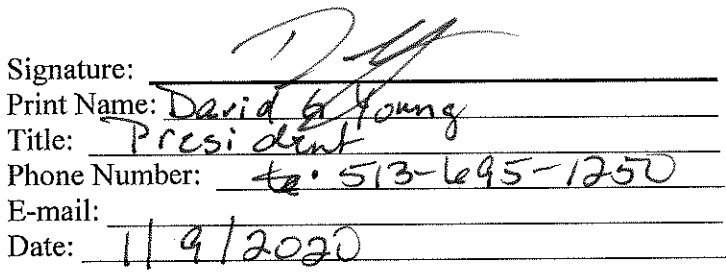 Signature:
Print Name: David G Young
Title: President
Phone Number: 513-695-1250
E-mail:
Date: 1/9/2020